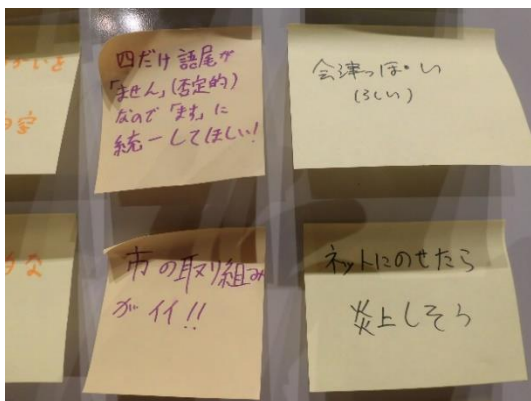 四だけ語尾が
「ません」(否定的)
なので「ます」に
統一してほしい!
会津っぽい
(らしい)
市の取り組み
がイイ!!
ネットにのせたら
炎上しそう